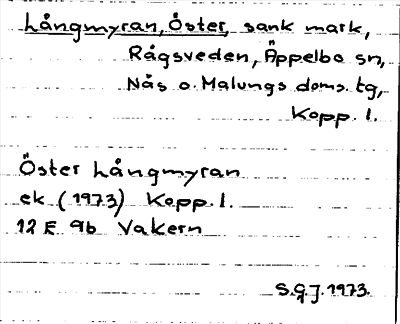 Långmyran, Öster, sank mark,
Rågsveden, Äppelbo sn,
Nås o. Malungs doms. tg,
Kopp. l.
Öster Långmyran
ek (1973) Kopp. l.
12 E 9b Vakern
S.G.J. 1973.